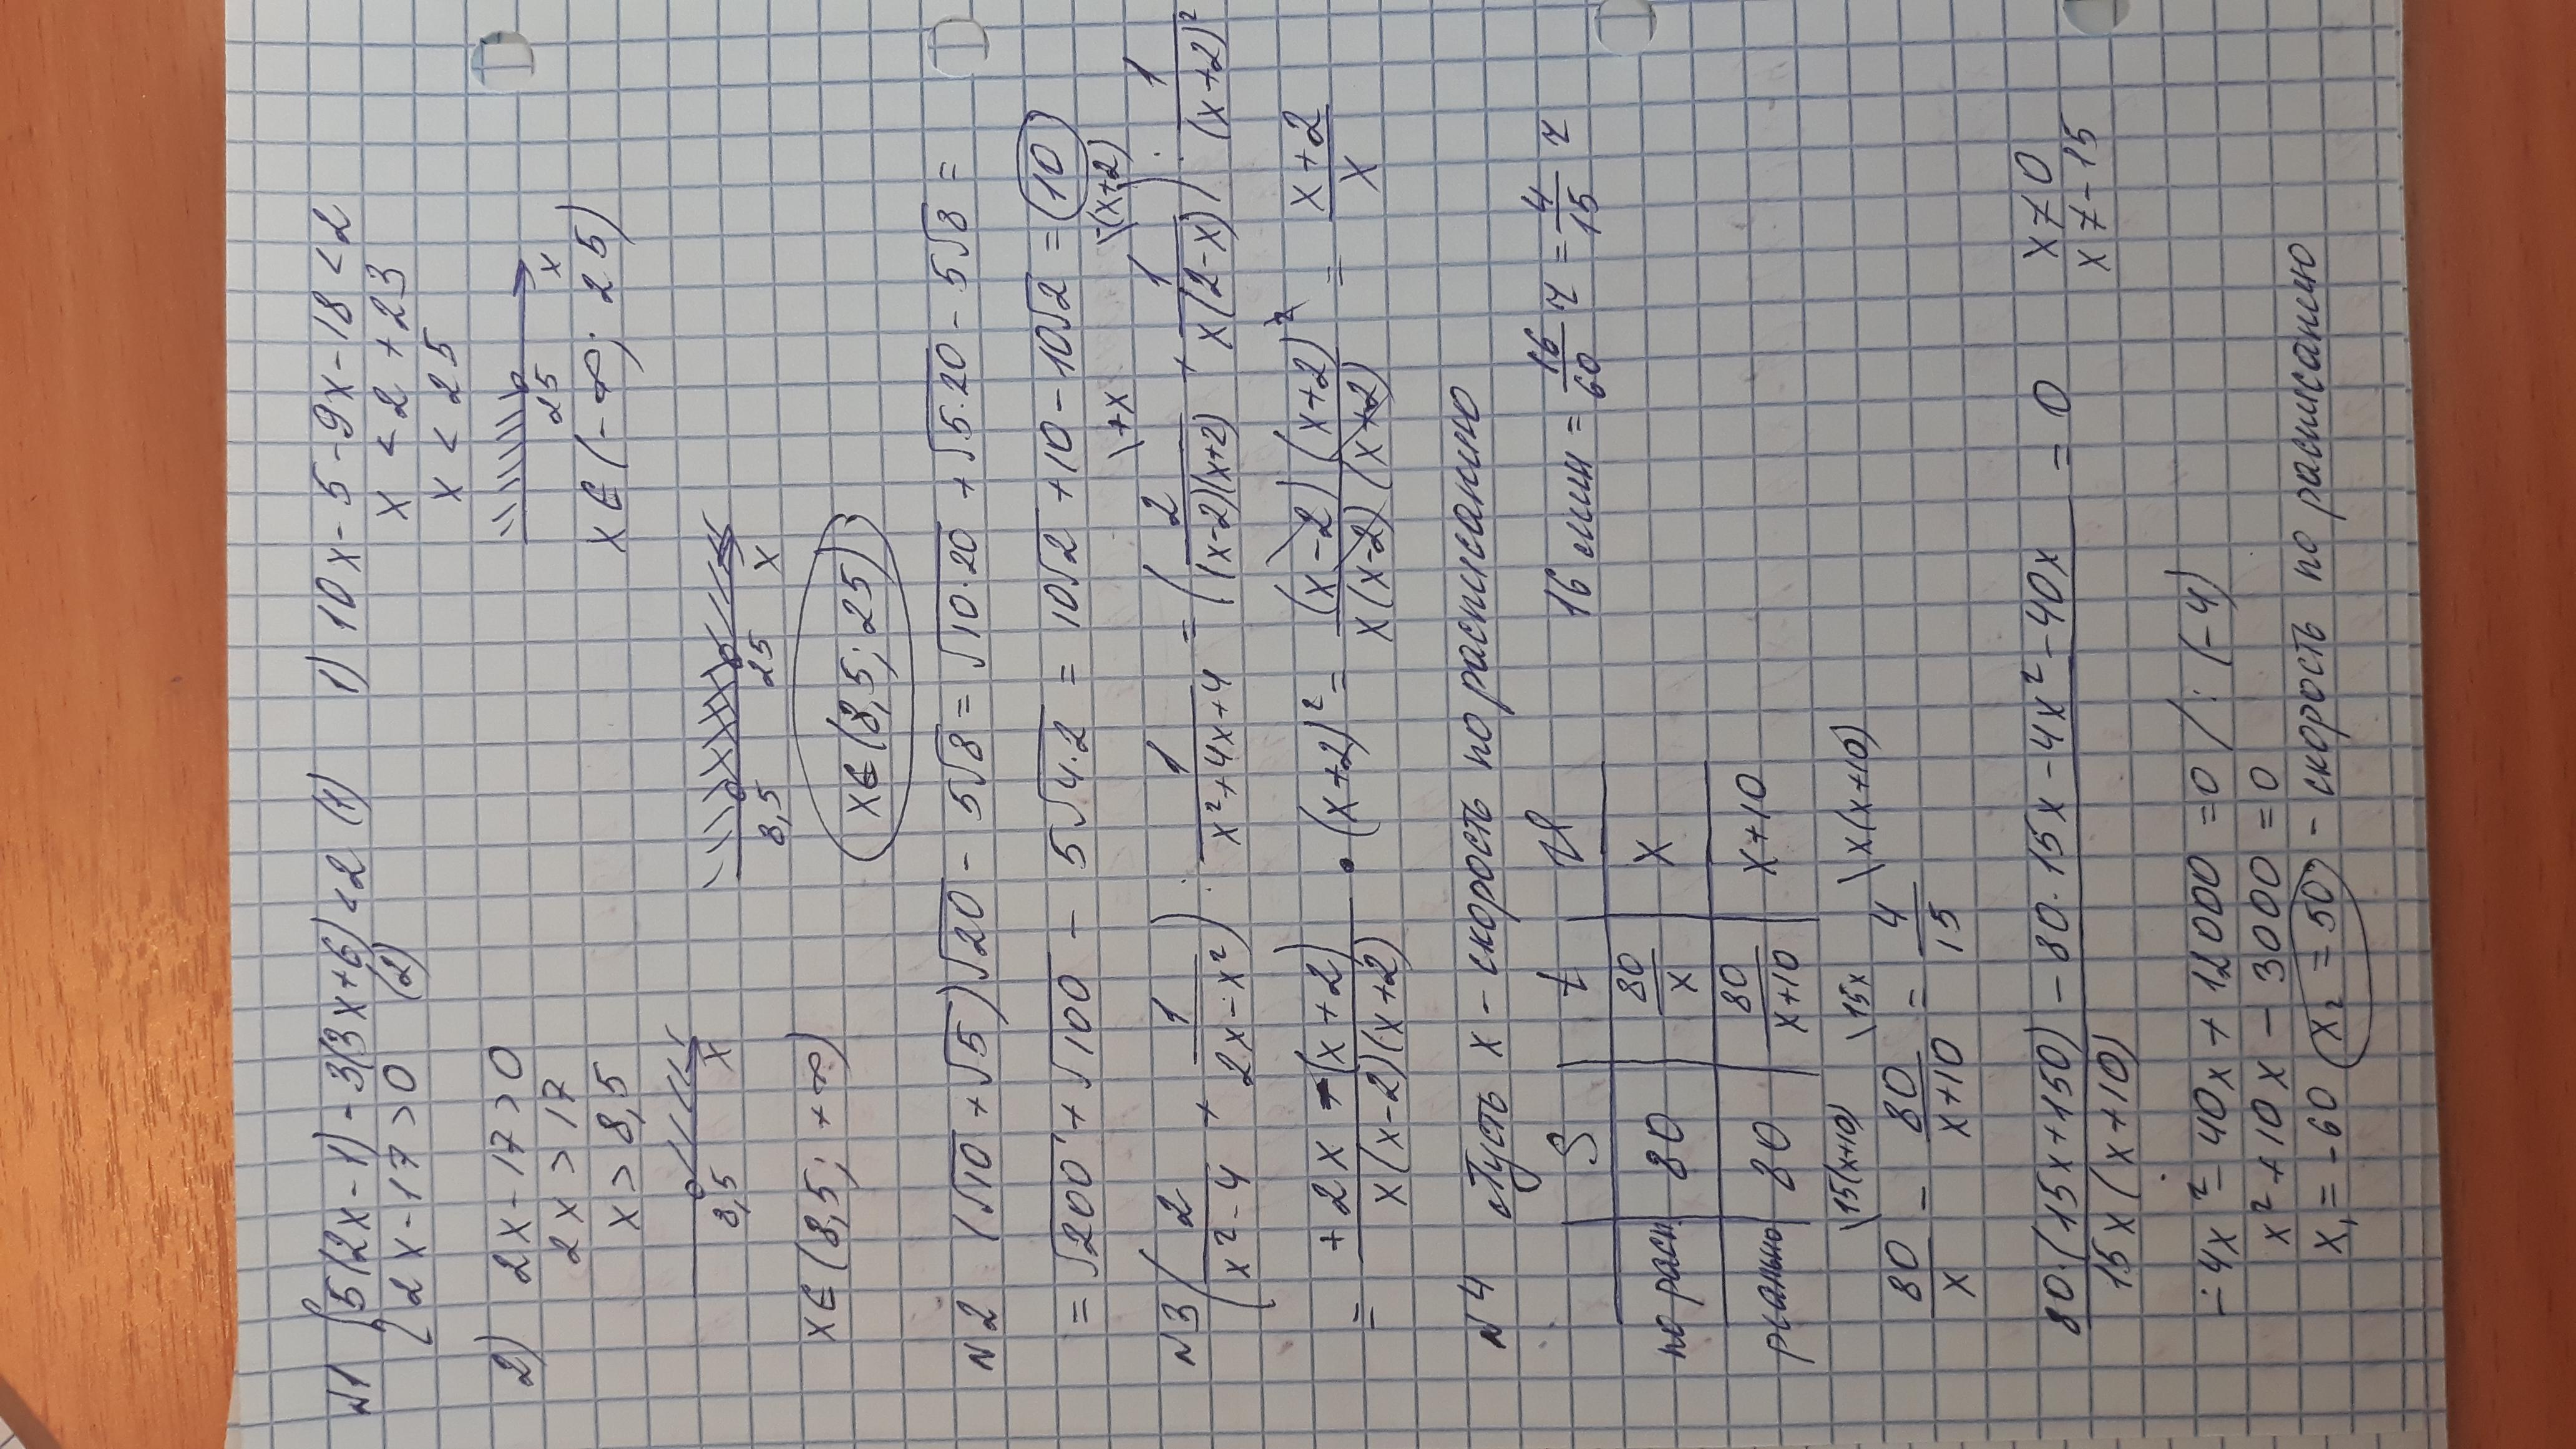 N1 { 5(2x-1)-3(3x+6)<2 (1)
2x-17>0 (2)
1) 10x-5-9x-18<2
x<2+23
x<25
25 x
x∈(-∞; 25)
2) 2x-17>0
2x>17
x>8,5
8,5 x
x∈(8,5; +∞)
8,5 25 x
x∈(8,5; 25)
N2 (√10+√5)√20-5√8=√10·20+√5·20-5√8=
=√200+√100-5√4·2=10√2+10-10√2=10
N3 (2/(x²-4)+1/(2x-x²)):1/(x²+4x+4)=(2/((x-2)(x+2)) \+x +1/(x(2-x)) \-(x+2)):1/(x+2)²
=(+2x-(x+2))/(x(x-2)(x+2))·(x+2)²=((x-2)(x+2)²)/(x(x-2)(x+2))=(x+2)/x
N4 Пусть x - скорость по расписанию
S t V
по расп. 80 80/x x
реально 80 80/(x+10) x+10
16 мин = 16/60 ч = 4/15 ч
80/x \15(x+10) - 80/(x+10) \15x = 4/15 \x(x+10)
(80·(15x+150)-80·15x-4x²-40x)/(15x(x+10))=0
x≠0
x≠-15
-4x²-40x+12000=0 /:(-4)
x²+10x-3000=0
x₁=-60 x₂=50 - скорость по расписанию